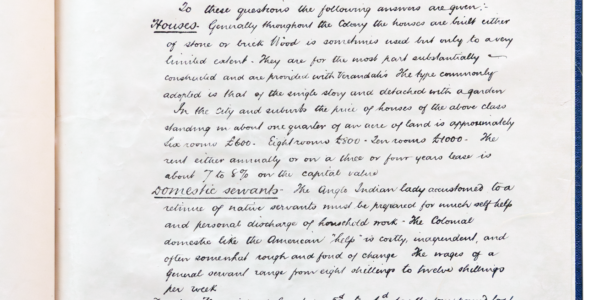 To these questions the following answers are given:-
Houses. Generally throughout the Colony the houses are built either
of stone or brick Wood is sometimes used but only to a very
limited extent. They are for the most part substantially
constructed and are provided with Verandahs The type commonly
adopted is that of the single story and detached with a garden
In the City and suburbs the price of houses of the above class
standing in about one quarter of an acre of land is approximately
Six rooms £600. Eight rooms £800 - Ten rooms £1000 - The
rent either annually or on a three or four years lease is
about 7 to 8% on the capital value
Domestic servants - The Anglo Indian lady accustomed to a
retinue of native servants must be prepared for much self help
and personal discharge of household work - The Colonial
domestic like the American "help" is costly, independent, and
often somewhat rough and fond of change The wages of a
General servant range from eight shillings to twelve shillings
per week